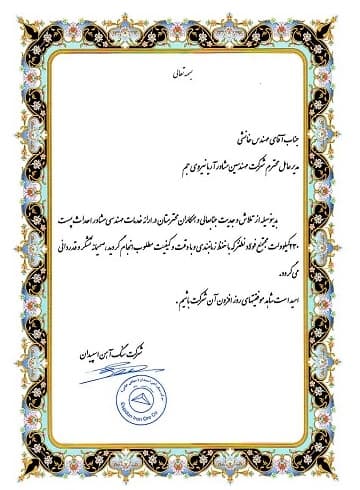 بسمه تعالی
جناب آقای مهندس خانمشی
مدیرعامل محترم شرکت مهندسین مشاور آریا نیروی جم
بدینوسیله از تلاش و جدیت جنابعالی و همکاران محترمتان در ارائه خدمات مهندسی مشاور احداث پست
۲۳۰ کیلوولت مجتمع فولاد که با حفظ زمانبندی و با دقت و کیفیت مطلوب انجام گردید، صمیمانه تشکر و قدردانی
می گردد.
امید است شاهد موفقیتهای روز افزون آن شرکت باشیم .
شرکت سنگ آهن اسپیدان
Espidan Iron Ore Co